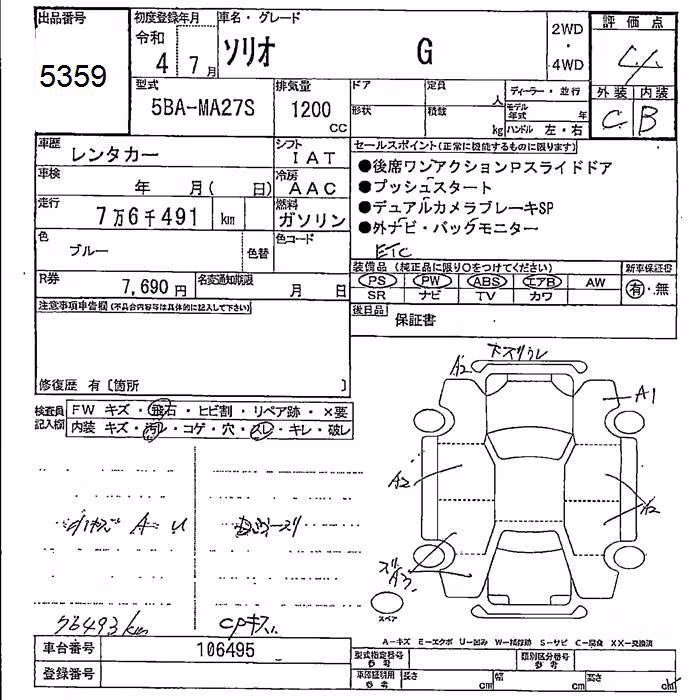 出品番号
5359
初度登録年月
令和 4 7月
車名・グレード
ソリオ G
2WD
・
4WD
評価点
4
外装 内装
C B
型式
5BA-MA27S
排気量
1200
cc
ドア 定員 人
形状 積載 kg
ディーラー・並行
モデル年式 年
ハンドル 左・右
車歴
レンタカー
シフト
IAT
車検
年 月( 日)
冷房
AAC
走行
7万6千491 km
燃料
ガソリン
色
ブルー
色替
色コード
R券
7,690円
名変通知期限
月 日
セールスポイント(正常に機能するものに限ります)
●後席ワンアクションPスライドドア
●プッシュスタート
●デュアルカメラブレーキSP
●外ナビ・バックモニター
ETC
装備品(純正品に限り○をつけてください)
PS PW ABS エアB AW
SR ナビ TV カワ
新車保証書
有・無
後日品
保証書
注意事項車告欄(不具合内容等は具体的に記入して下さい)
修復歴 有〔箇所 〕
検査員記入欄
FW キズ・飛石・ヒビ割・リペア跡・×要
内装 キズ・汚れ・コゲ・穴・スレ・キレ・破レ
A2
A1
A2
A2
スリ
A3
スペア
A-U
76493km
CPキズ
A-キズ E-エクボ U-凹み W-補修跡 S-サビ C-腐食 XX-交換済
車台番号
106495
登録番号
型式指定番号
参考
類別区分番号
参考
車庫証明用
参考
長さ cm
幅 cm
高さ cm